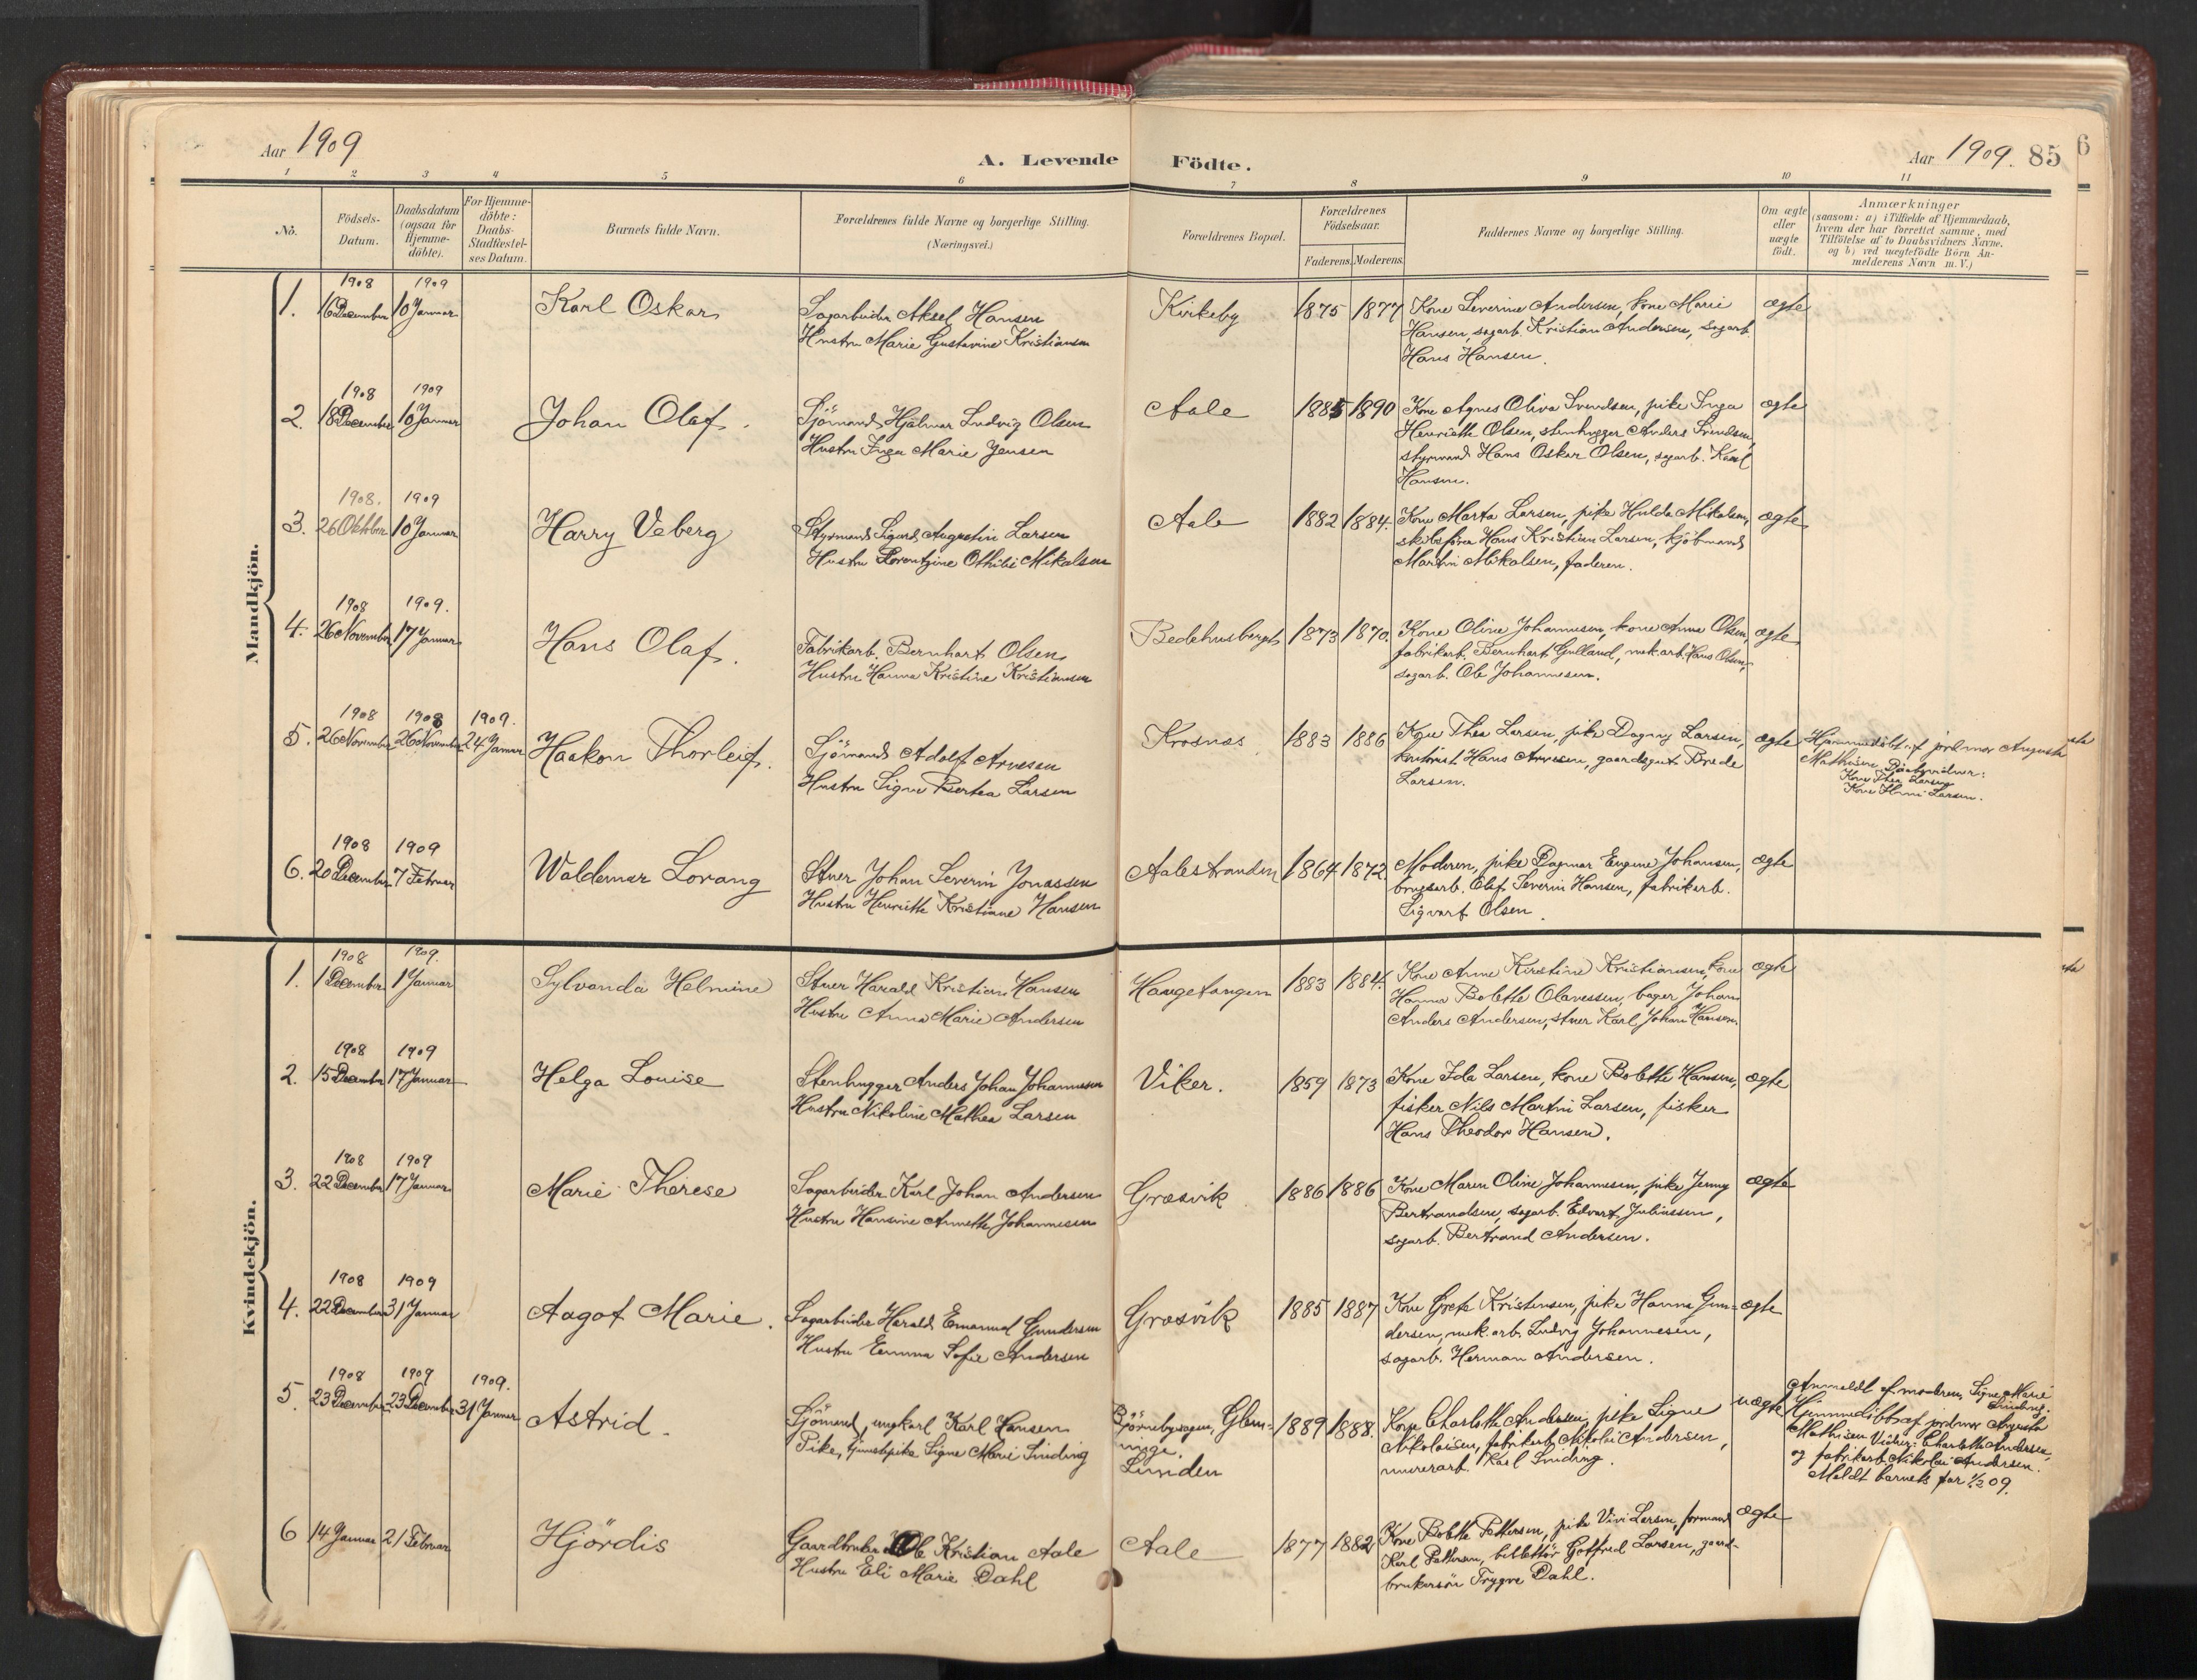 Aar 1909
A. Levende Födte.
Aar 1909. 85
6
1 2 3 4 5 6 7 8 9 10 11
No.
Födsels-Datum.
Daabsdatum (ogsaa for Hjemme-döbte).
For Hjemme-döbte: Daabs-Stadfæstel-ses Datum.
Barnets fulde Navn.
Forældrenes fulde Navne og borgerlige Stilling.
(Næringsvei.)
Forældrenes Bopæl.
Forældrenes Födselsaar.
Faderens. Moderens.
Faddernes Navne og borgerlige Stilling.
Om ægte eller uægte födt.
Anmærkninger
(saasom: a) i Tilfælde af Hjemmedaab,
hvem der har forrettet samme, med
Tilföielse af to Daabsvidners Navne.
og b) ved uægtefödte Börn An-
melderens Navn m. V.)
Mandkjön.
1. 1908 16 December 1909 10 Januar
Karl Oskar
Sagarbeider Aksel Hansen
Hustru Marie Gustavine Kristiansen
Kirkeby
1875 1877
Kone Severine Andersen, kone Marie
Hansen, sagarb. Kristian Andersen, sagarb.
Hans Hansen.
ægte
2. 1908 18 December 1909 10 Januar
Johan Olaf.
Sjömand Hjalmar Ludvig Olsen
Hustru Inga Marie Jensen
Aale
1885 1890
Kone Agnes Oliva Svendsen, pike Inga
Henriette Olsen, stenhugger Anders Svendsen,
styrmand Hans Oskar Olsen, sagarb. Karl
Hansen.
ægte
3. 1908. 26 Oktober 1909 10 Januar
Harry Veberg
Styrmand Sigurd Augustin Larsen
Hustru Lorentzine Othilie Mikalsen
Aale
1882 1884.
Kone Marta Larsen, pike Hulda Mikalsen,
skibsförer Hans Kristian Larsen, kjöbmand
Martin Mikalsen, faderen.
ægte
4. 1908 26 November 1909. 17 Januar
Hans Olaf.
Fabrikarb. Bernhart Olsen
Hustru Hanna Kristine Kristiansen
Bedehusberget
1873 1870.
Kone Oline Johannesen, kone Anna Olsen,
fabrikarb. Bernhart Gulland, mek.arb. Hans Olsen,
sagarb. Ole Johannesen.
ægte
5. 1908 26 November 1908 26 November 1909. 24 Januar
Haakon Thorleif.
Sjömand Adolf Arnesen
Hustru Signe Bertea Larsen
Krosnæs
1883 1886
Kone Thea Larsen, pike Dagny Larsen,
Hans Arnesen, gaardsgut Brede
Larsen.
ægte
Hjemmedöbt af jordmor Augusta
Mathisen. Daabsvidner:
Kone Thea Larsen
Kone Larsen.
6. 1908 20 December 1909 7 Februar
Waldemar Lorang
Stuer Johan Severin Jonassen
Hustru Henriette Kristiane Hansen
Aalestranden
1864 1872
Moderen, pike Dagmar Eugenie Johansen,
brugsarb. Olaf Severin Hansen, fabrikarb.
Sigvart Olsen.
ægte
Kvindekjön.
1. 1908 1 December 1909. 1 Januar
Sylvanda Helmine
Stuer Harald Kristian Hansen
Hustru Anna Marie Andersen
Haugetangen
1883 1884.
Kone Anne Kirstine Kristiansen, kone
Hanna Bolette Olavessen, bager Johan
Anders Andersen, stuer Karl Johan Hansen.
ægte
2. 1908 15 December 1909 17 Januar
Helga Louise
Stenhugger Anders Johan Johannesen
Hustru Nikoline Mathea Larsen
Viker.
1859 1873
Kone Ida Larsen, kone Bolette Hansen,
fisker Nils Martin Larsen, fisker
Hans Theodor Hansen.
ægte
3. 1908 22 December 1909 17 Januar
Marie Therese
Sagarbeider Karl Johan Andersen
Hustru Hansine Annette Johannesen
Græsvik
1886 1886
Kone Maren Oline Johannesen, pike Jenny
Bertrandsen, sagarb. Edvart Juliussen,
sagarb. Bertrand Andersen.
ægte
4. 1908 22 December 1909 31 Januar
Aagot Marie.
Sagarbeider Harald Emanuel Gundersen
Hustru Emma Sofie Andersen
Græsvik
1885 1887
Kone Grete Kristensen, pike Hanna Gun=
dersen, mek.arb. Ludvig Johannesen,
sagarb. Herman Andersen.
ægte
5. 1908 23 December 1909 23 December 1909. 31 Januar
Astrid.
Sjömand, ungkarl Karl Hansen
Pike, tjenestpike Signe Marie Sinding
Björnebysagen, Glem=
minge.
Lunden
1889 1888.
Kone Charlotte Andersen, pike Signe
Nikolaisen, fabrikarb. Nikolai Andersen,
murerarb. Karl Sinding.
uægte
Anmeldt af moderen, Signe Marie
Sinding.
Hjemmedöbt af jordmor Augusta
Mathisen. Vidner: Charlotte Andersen
og fabrikarb. Nikolai Andersen.
Meldt barnets far 1/2 09.
6 14 Januar 21 Februar
Hjördis
Gaardbruker Ole Kristian Aale
Hustru Eli Marie Dahl
Aale
1877 1882
Kone Bolette Pettersen, pike Vivi Larsen, formand
Karl Pettersen, billettör Gotfred Larsen, gaard-
brukersön Trygve Dahl.
ægte